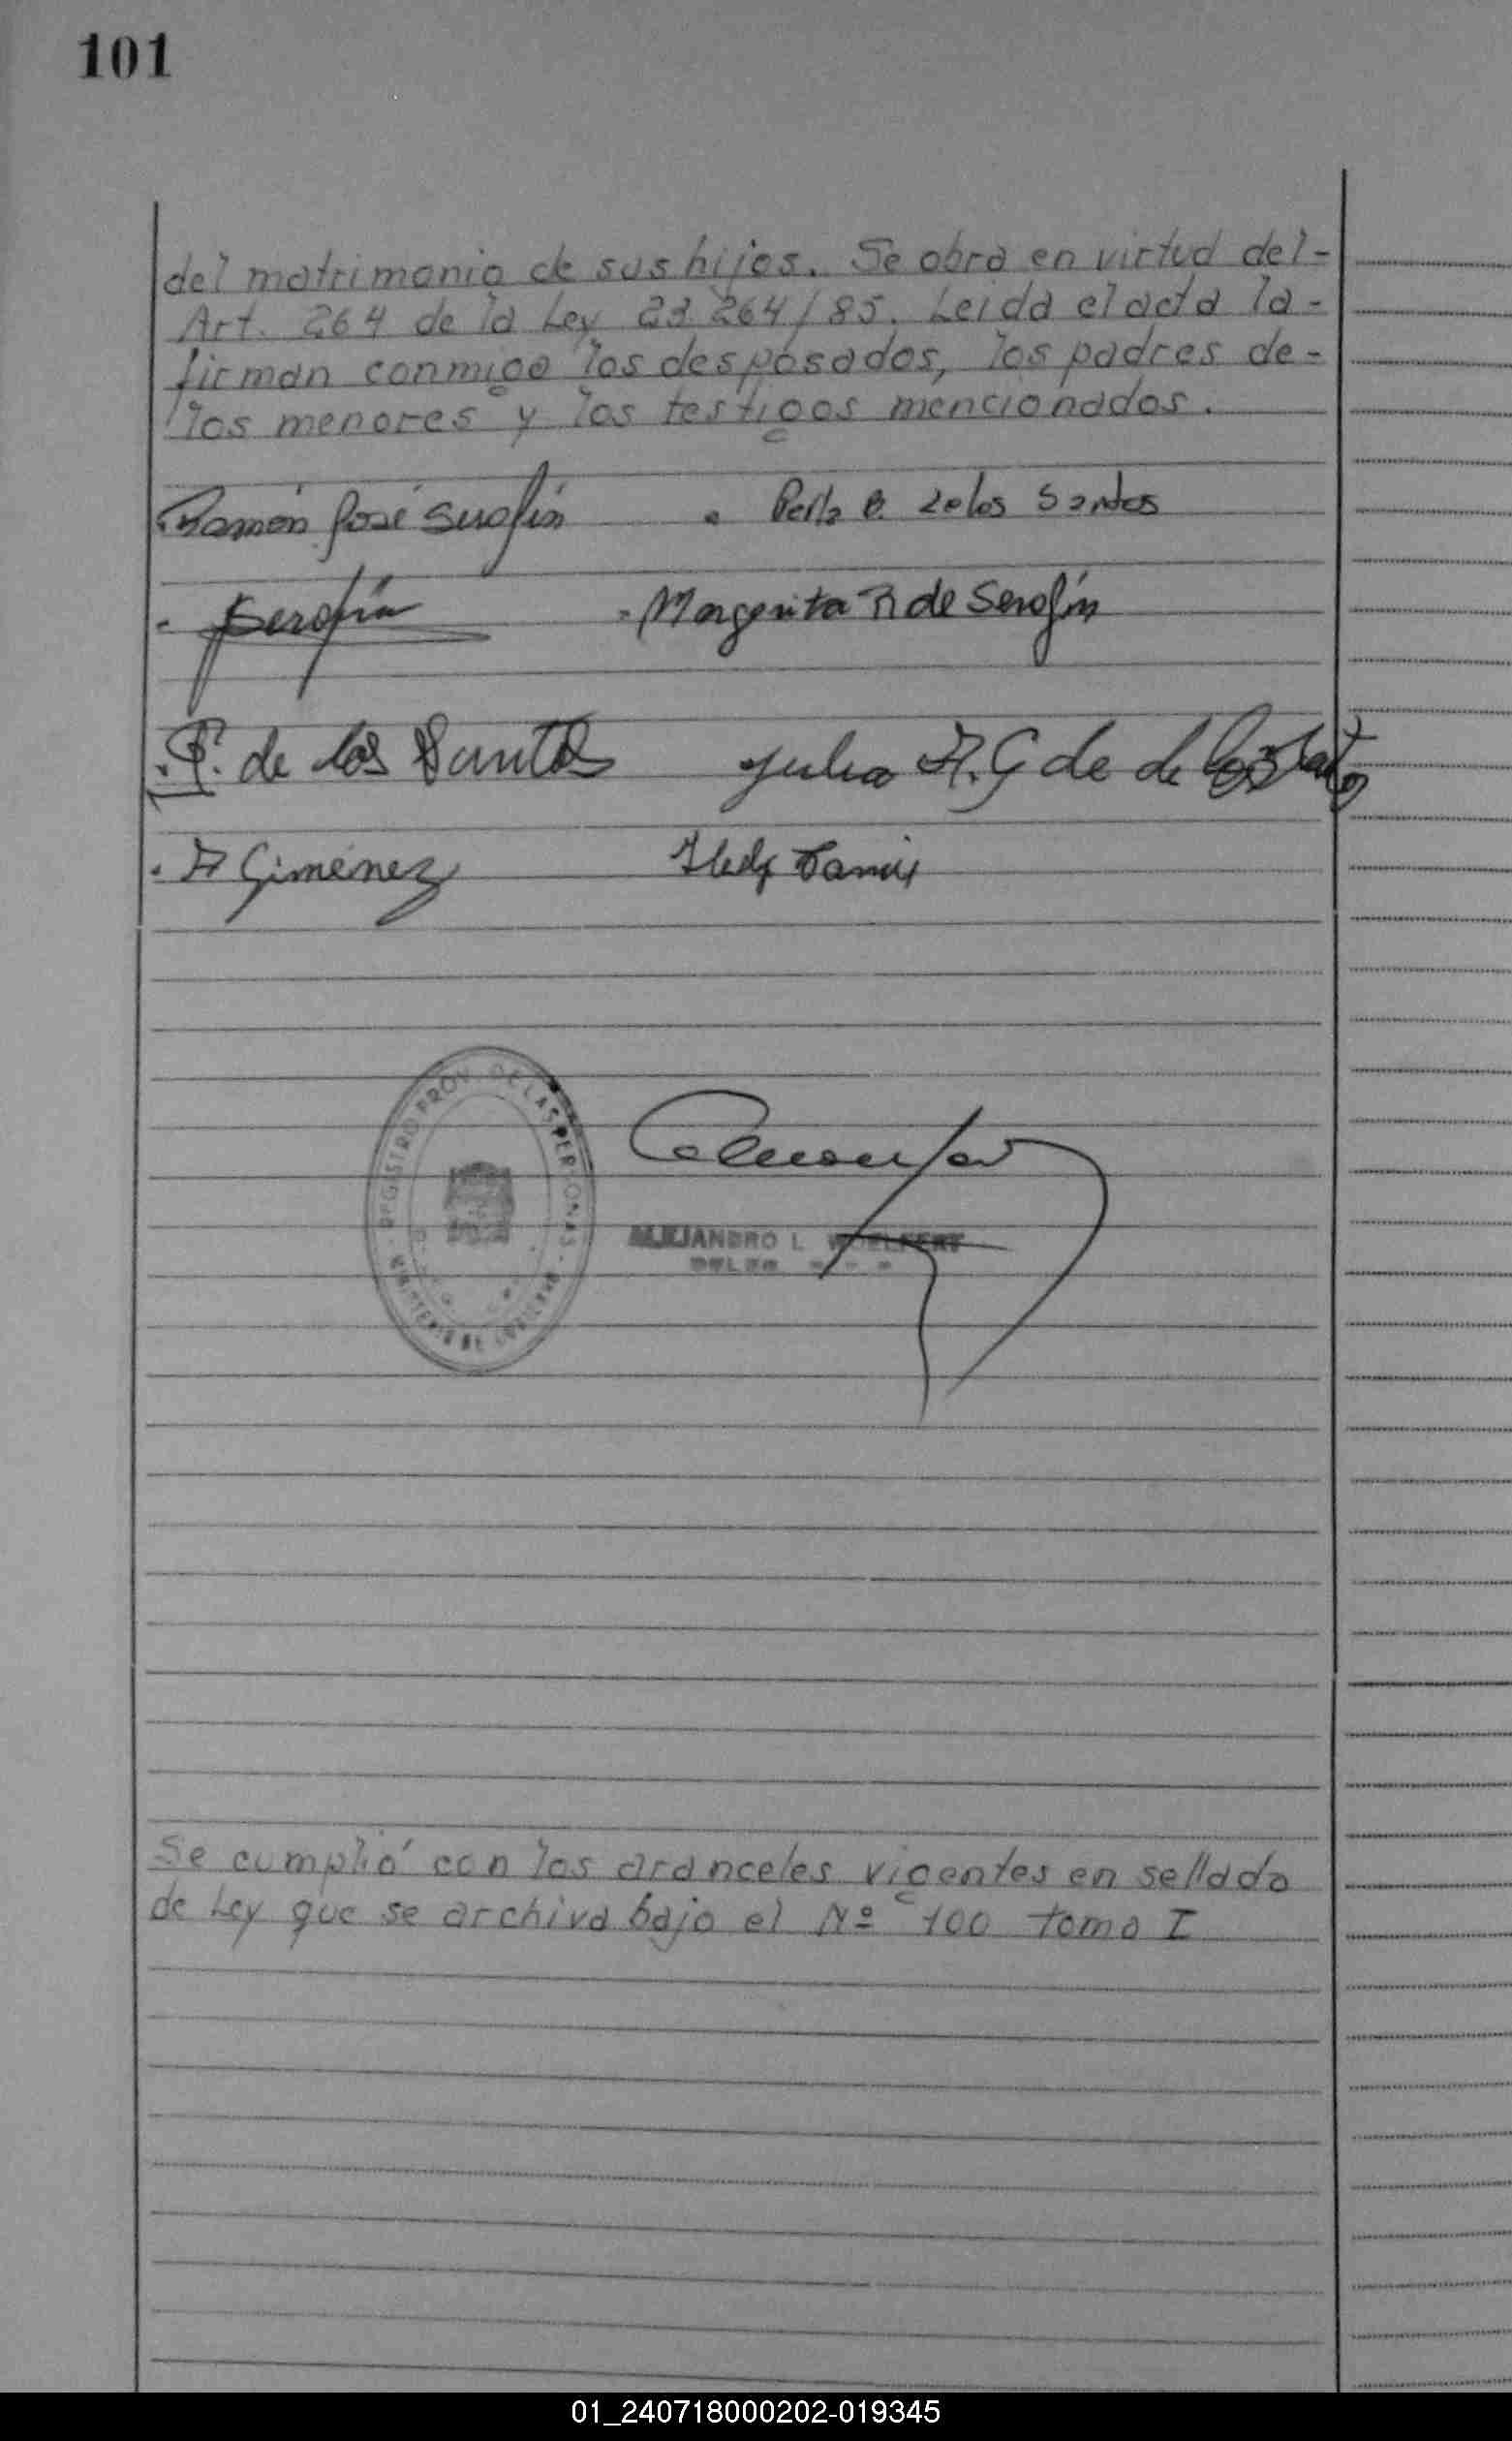 101
del matrimonio de sus hijos. Se obra en virtud del-
Art. 264 de la Ley 23 264/85. Leida el acta la-
firman conmigo los desposados, los padres de-
los menores y los testigos mencionados.
Ramón José Serafín . Perla B. de los Santos
. Serafín . Margarita R de Serafín
. P. de los Santos Julia A. G de de los Santos
. A Giménez
REGISTRO PROV. DE LAS PERSONAS
ALEJANDRO L WOELFERT
Se cumplió con los aranceles vigentes en sellado
de Ley que se archiva bajo el Nº 100 tomo I
01_240718000202-019345